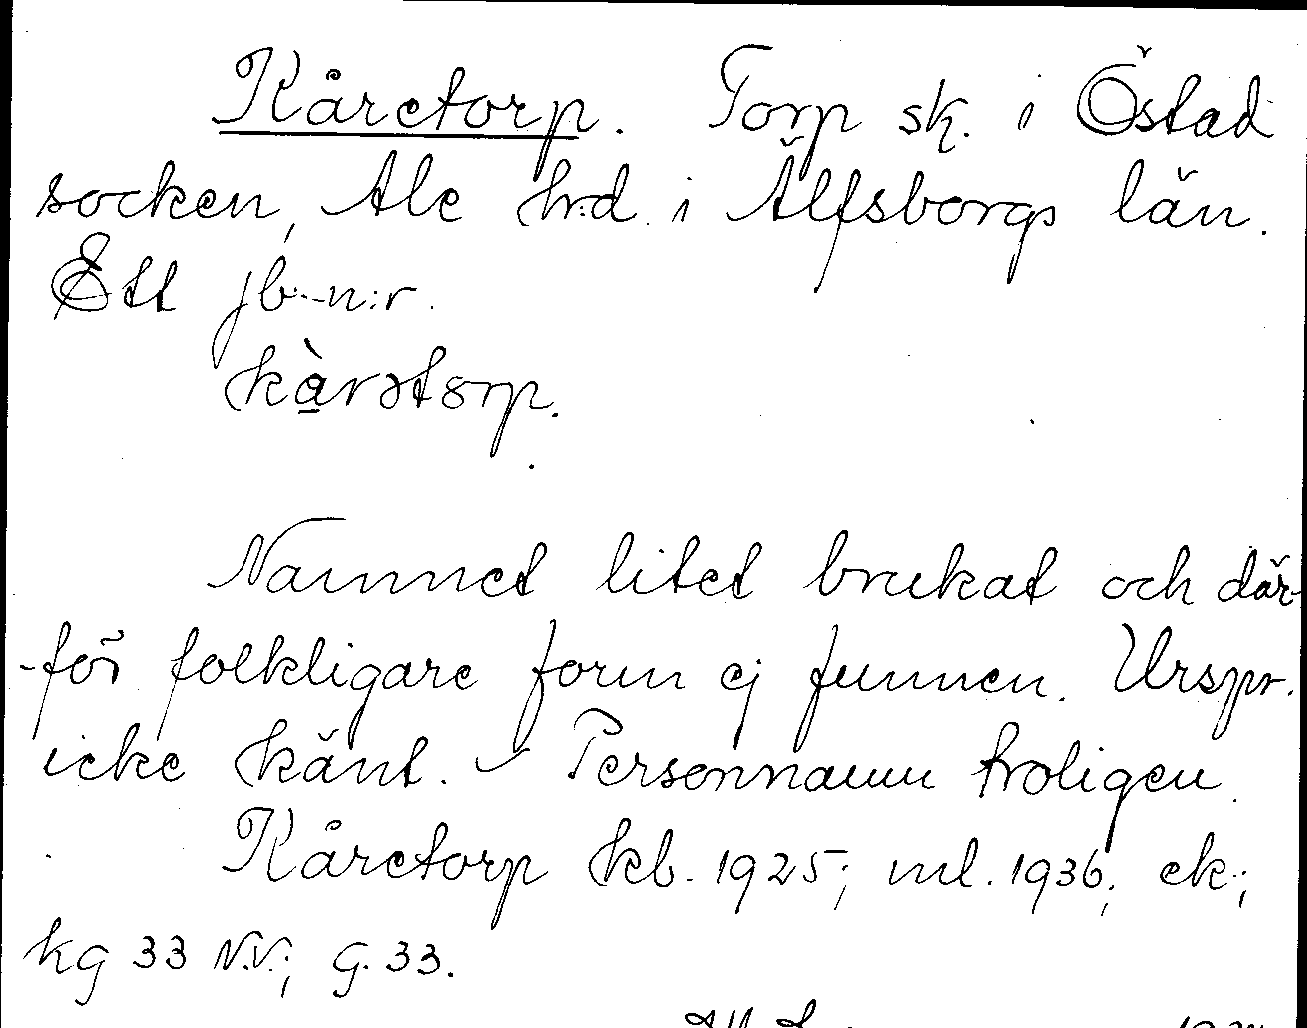 Kåretorp. Torp sk. i Östad
socken, Ale hrd. i Älfsborgs län.
Ett jb.-n:r.
kàrətorp.
Namnet litet brukat och där-
-för folkligare form ej funnen. Urspr.
icke känt. – Personnamn troligen.
Kåretorp kb. 1925; ml. 1936; ek.;
kg 33 N.V.; G. 33.